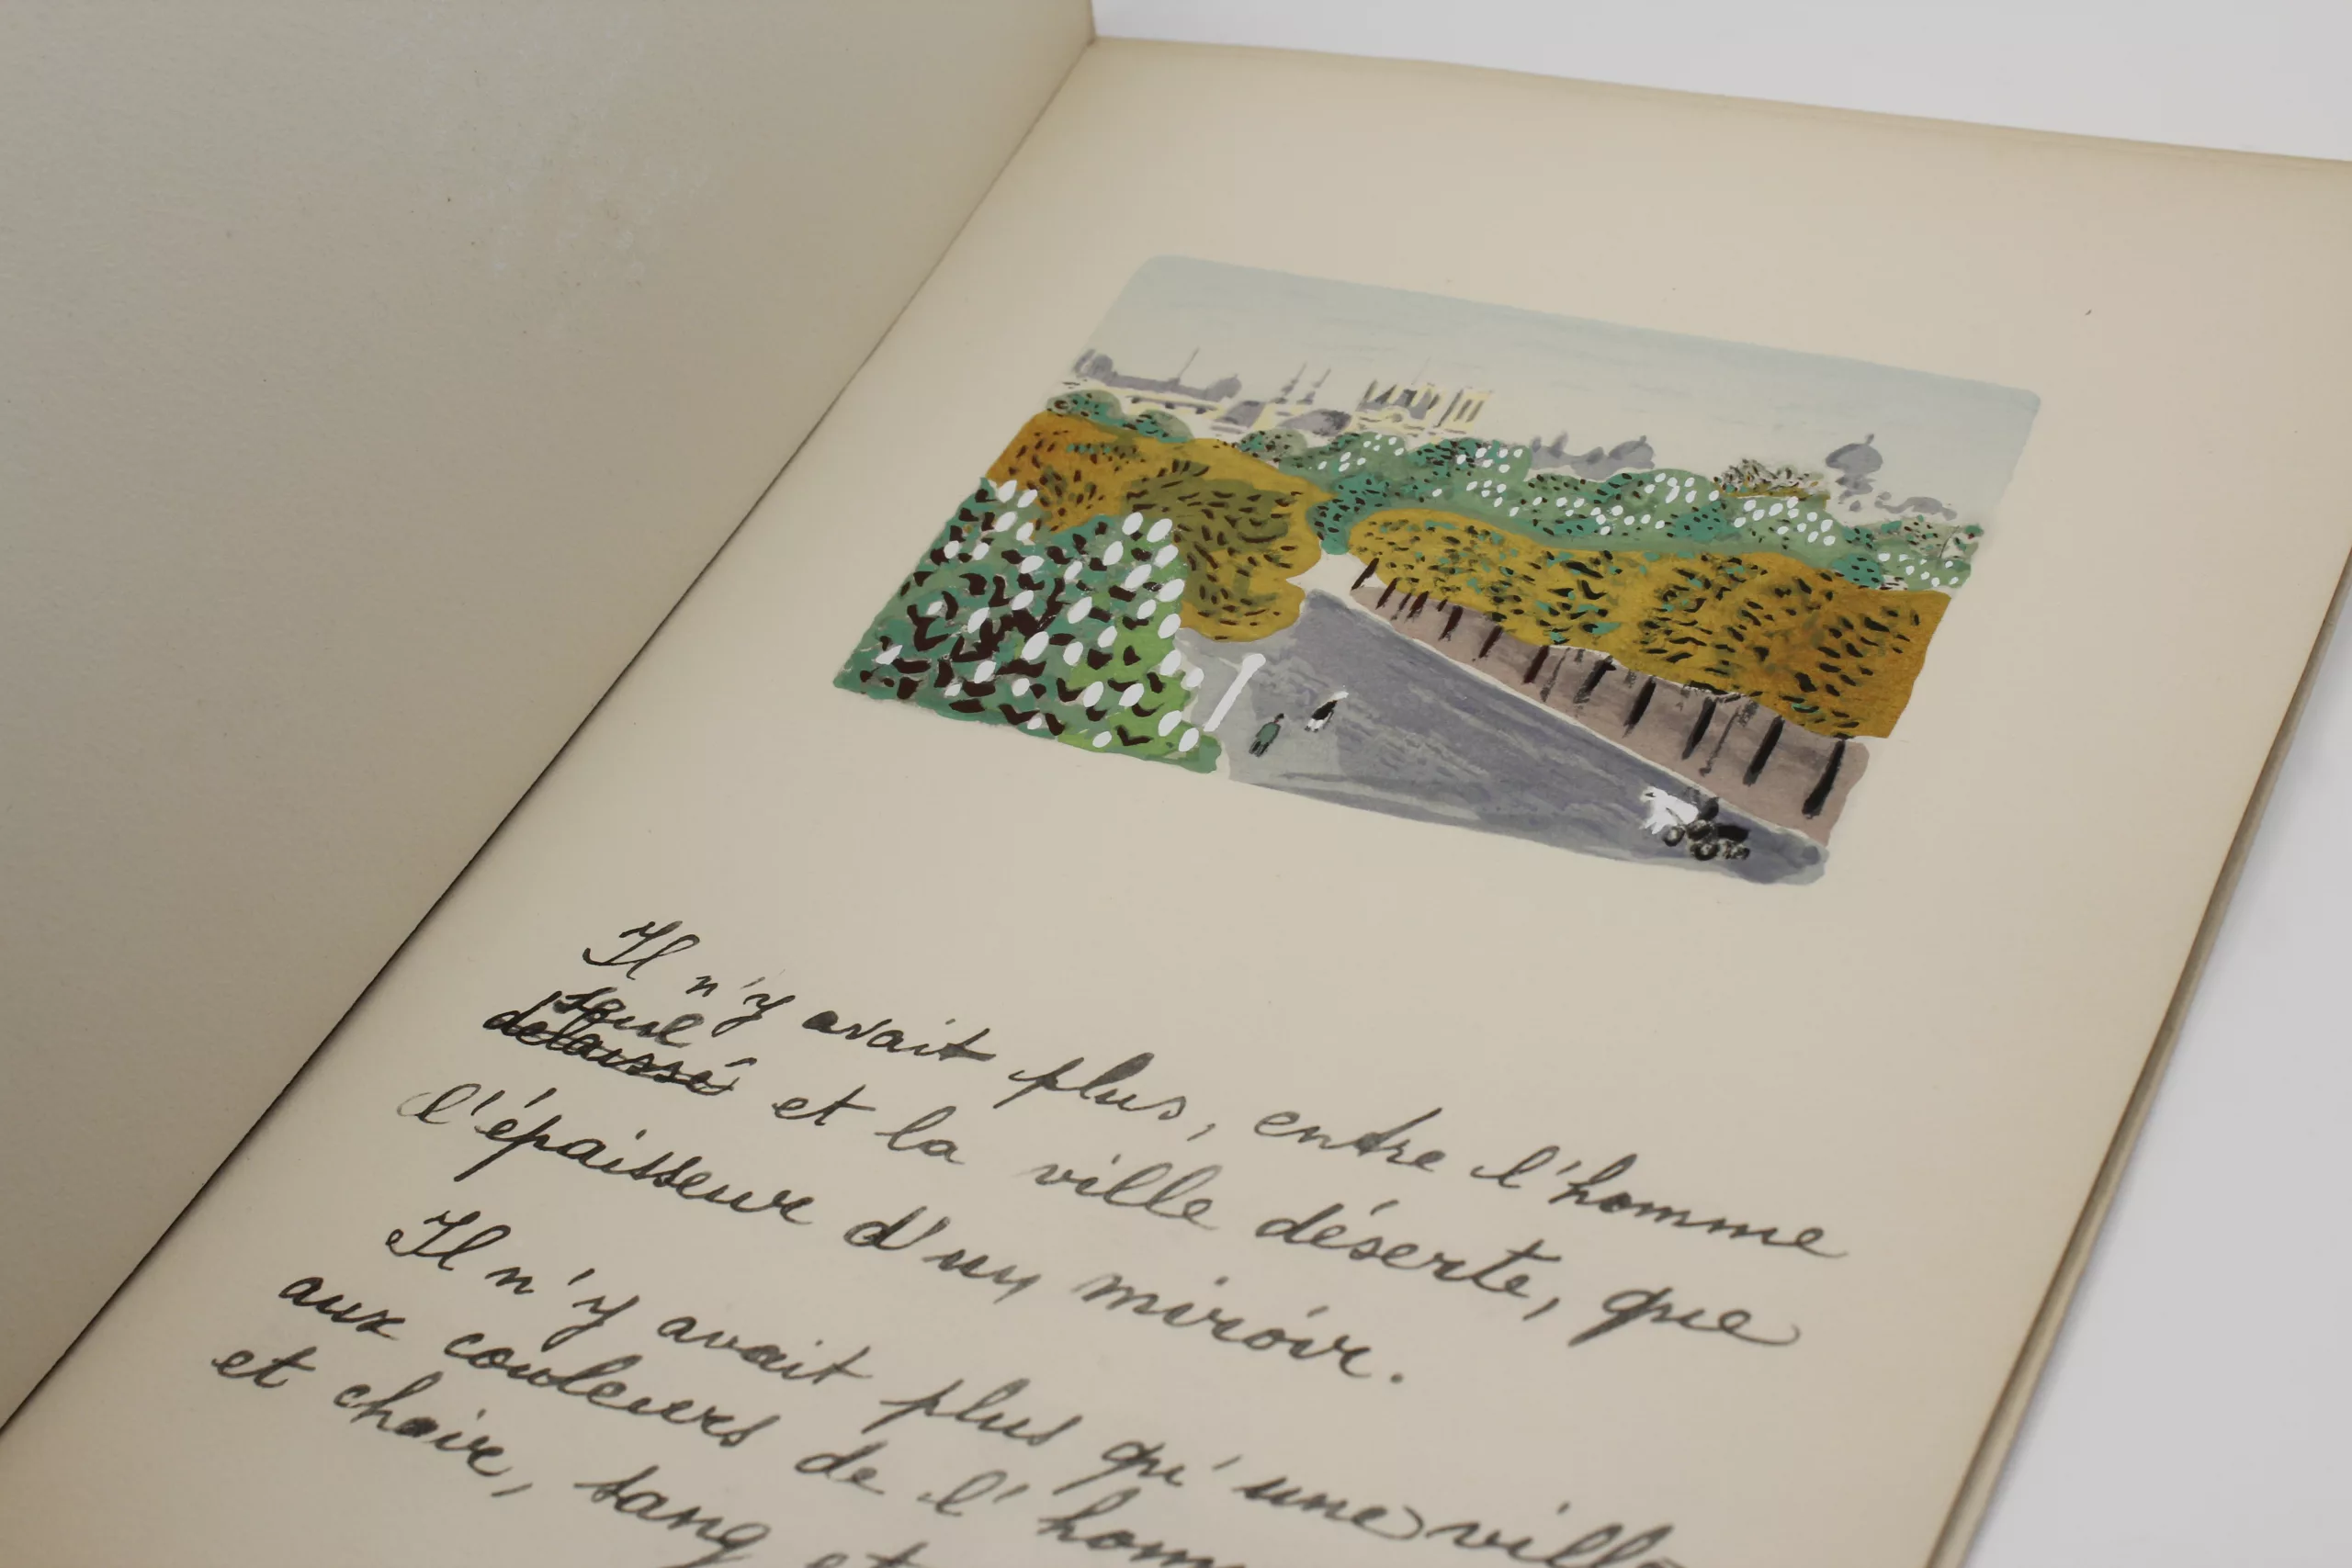 Il n'y avait plus, entre l'homme
seul
delaissé et la ville déserte, que
l'épaisseur d'un miroir.
Il n'y avait plus qu'une ville
aux couleurs de l'hom
et chair, sang et